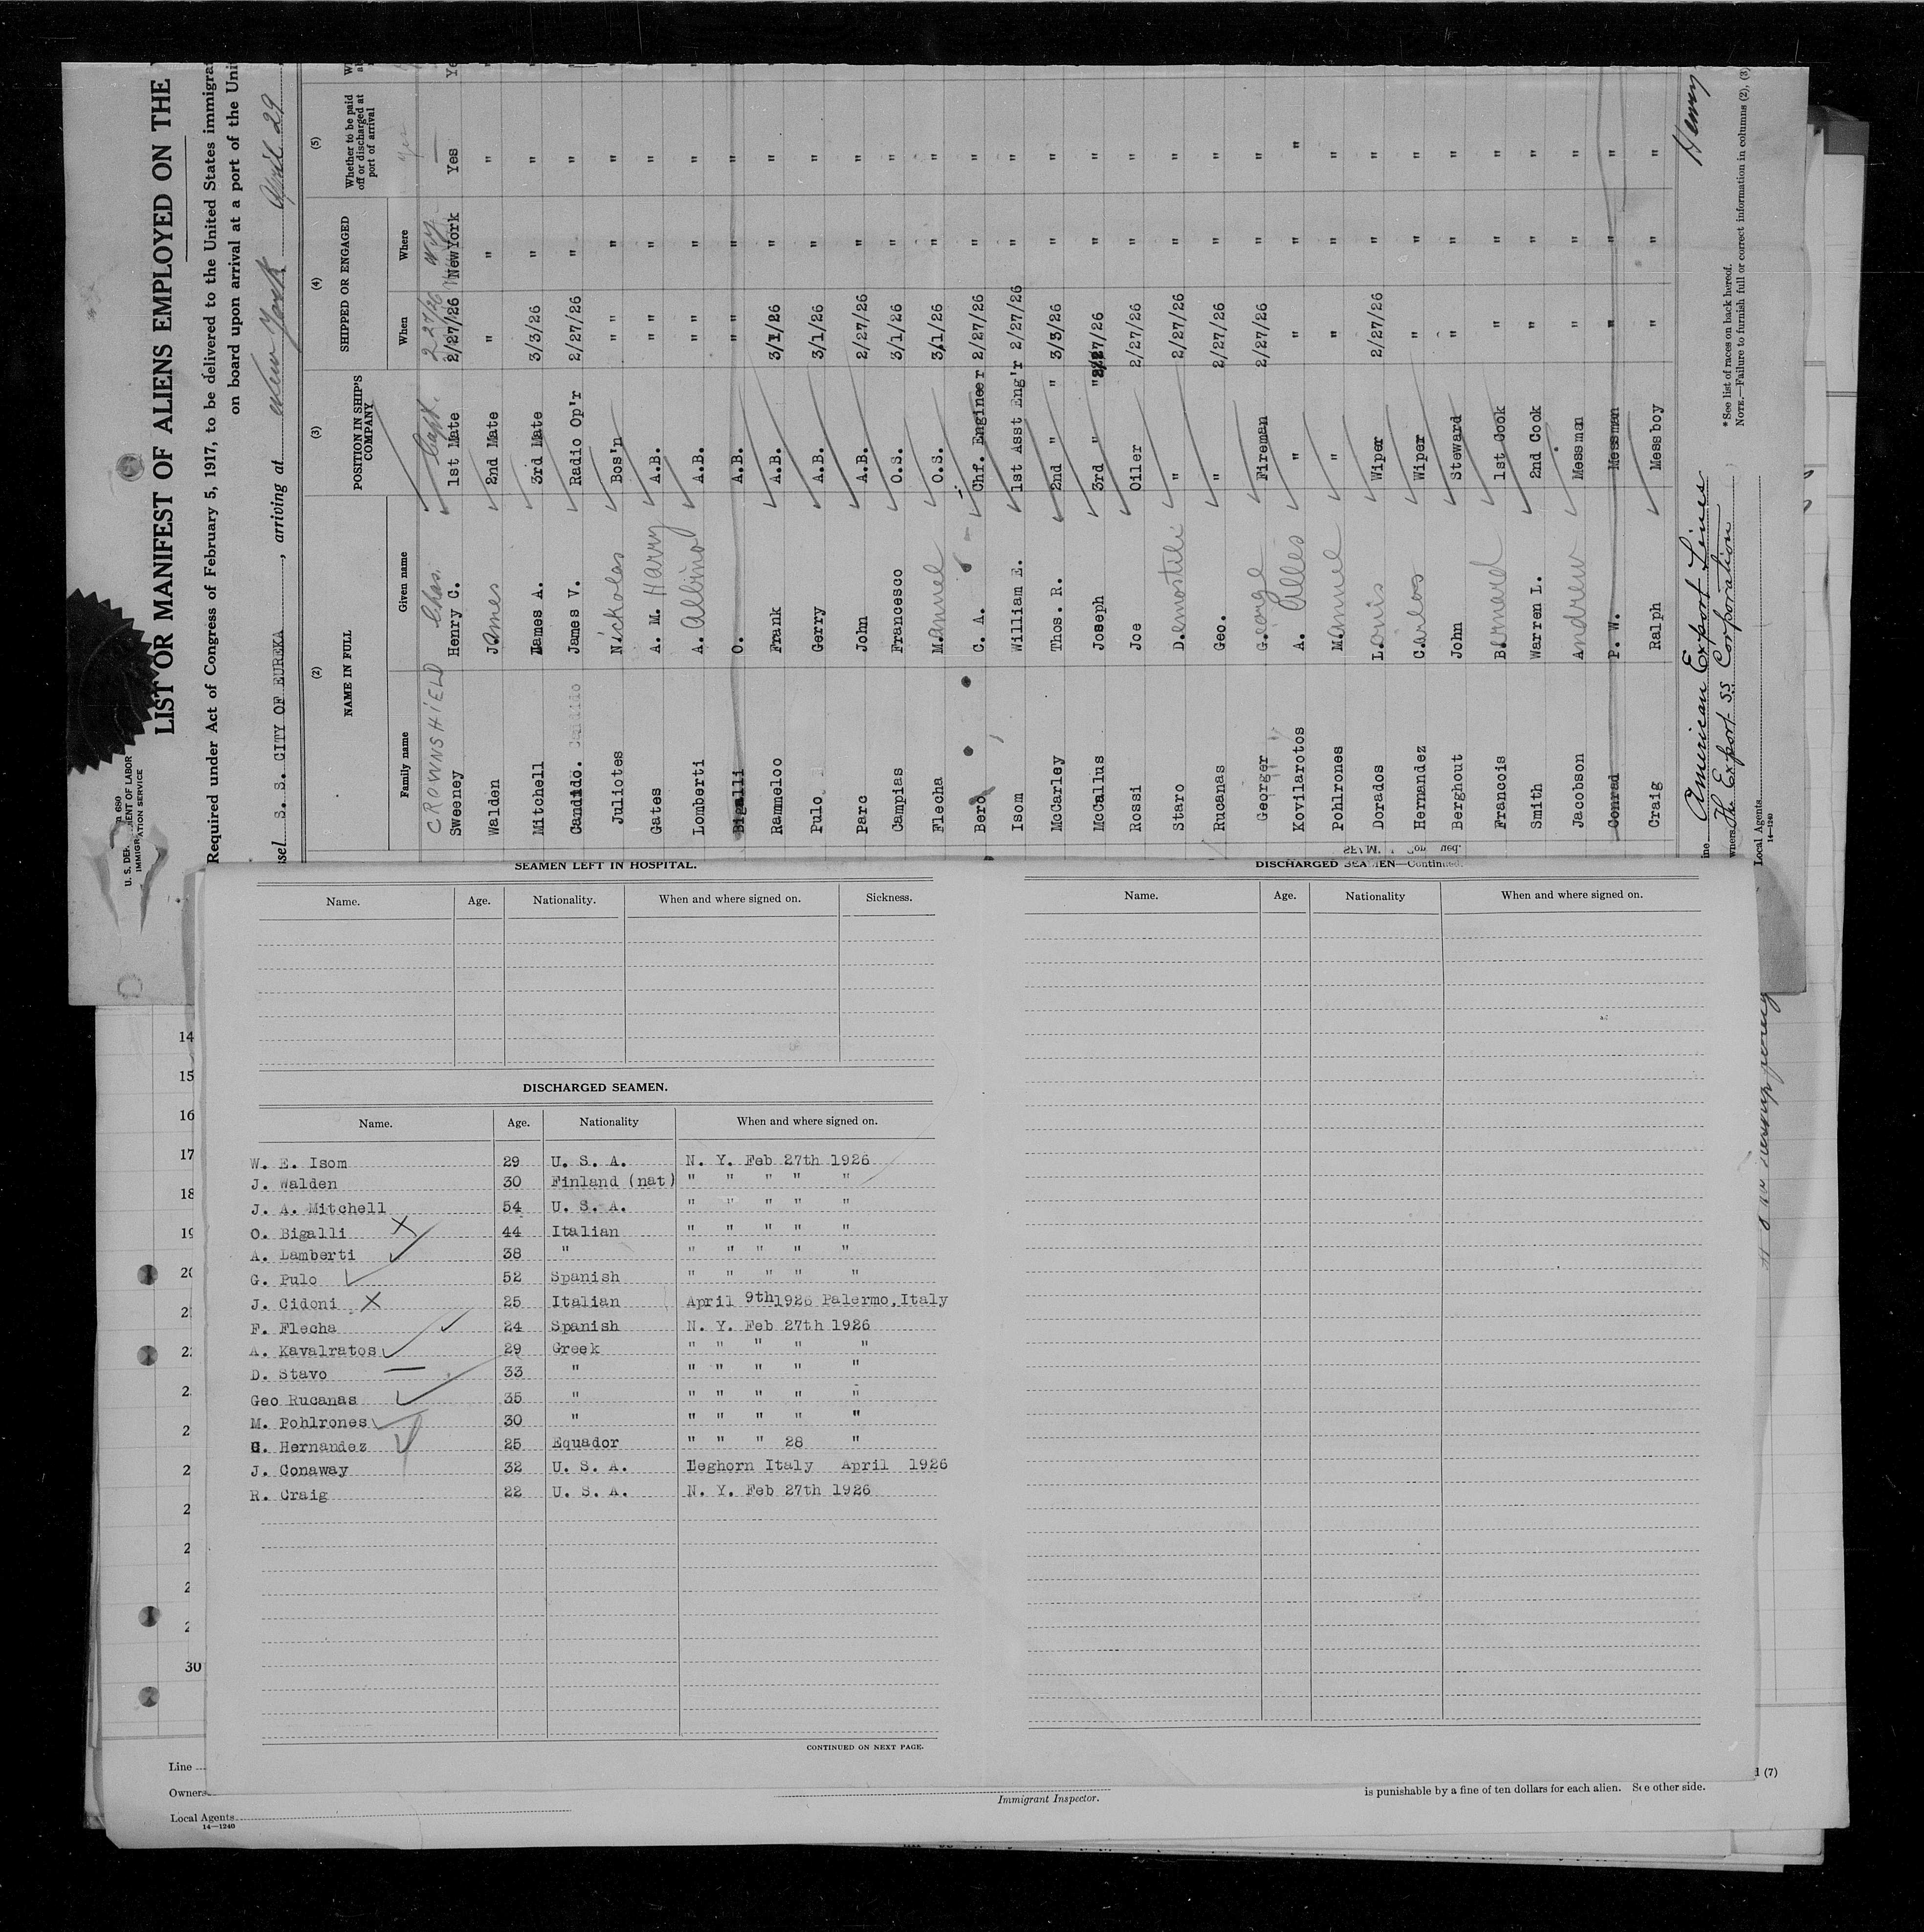 U. S. DEPARTMENT OF LABOR
IMMIGRATION SERVICE
LIST OR MANIFEST OF ALIENS EMPLOYED ON THE
Required under Act of Congress of February 5, 1917, to be delivered to the United States immigra
on board upon arrival at a port of the Unit
sel S. S. CITY OF EUREKA, arriving at New York April 29
(2) (3) (4) (5)
NAME IN FULL POSITION IN SHIP'S COMPANY SHIPPED OR ENGAGED Whether to be paid off or discharged at port of arrival
Family name Given name When Where
CROWNSHIELD Chas. Capt. 2/27/26 N.Y. Yes
Sweeney Henry C. 1st Mate 2/27/26 New York Yes Yes
Walden James 2nd Mate " " " "
Mitchell James A. 3rd Mate 3/3/26 " " "
Candido. James V. Radio Op'r 2/27/26 " " "
Juliotes Nickolas Bos'n " " " " "
Gates A. M. Harry A.B. " " " " "
Lomberti A. Albino A.B. " " " " "
Bigalli O. A.B. " " " "
Rammeloo Frank A.B. 3/1/26 " " "
Pulo Gerry A.B. 3/1/26 " " "
Parc John A.B. 2/27/26 " " "
Campias Francesco O.S. 3/1/26 " " "
Flecha Manuel O.S. 3/1/26 " " "
Bero C. A. Chf. Engineer 2/27/26 " " "
Isom William E. 1st Asst Eng'r 2/27/26 " " "
McCarley Thos. R. 2nd " " 3/3/26 " " "
McCallus Joseph 3rd " " 2/27/26 " " "
Rossi Joe Oiler 2/27/26 " " "
Staro Demostili " 2/27/26 " " "
Rucanas Geo. " 2/27/26 " " "
Georger George Fireman 2/27/26 " " "
Kovilarotos A. " " " " "
Pohlrones Manuel " " " " "
Dorados Louis Wiper 2/27/26 " " "
Hernandez Carlos Wiper " " " "
Berghout John Steward " " " "
Francois Bernard 1st Cook " " " "
Smith Warren L. 2nd Cook " " " "
Jacobson Andrew Messman " " " "
Conrad P. W. Messman " " " "
Craig Ralph Messboy " " " "
ine American Export Lines Henry
wners The Export SS Corporation
Local Agents
14—1240
*See list of races on back hereof.
NOTE.—Failure to furnish full or correct information in columns (2), (3)
SEAMEN LEFT IN HOSPITAL.
Name. Age. Nationality. When and where signed on. Sickness.
DISCHARGED SEAMEN.
Name. Age. Nationality When and where signed on.
W. E. Isom 29 U. S. A. N. Y. Feb 27th 1926
J. Walden 30 Finland (nat) " " " " "
J. A. Mitchell 54 U. S. A. " " " " "
O. Bigalli X 44 Italian " " " " "
A. Lamberti 38 " " " " " "
G. Pulo 52 Spanish " " " " "
J. Cidoni X 25 Italian April 9th 1926 Palermo, Italy
F. Flecha 24 Spanish N. Y. Feb 27th 1926
A. Kavalratos 29 Greek " " " " "
D. Stavo 33 " " " " " "
Geo Rucanas 35 " " " " " "
M. Pohlrones 30 " " " " " "
C. Hernandez 25 Equador " " " 28 "
J. Conaway 32 U. S. A. Leghorn Italy April 1926
R. Craig 22 U. S. A. N. Y. Feb 27th 1926
CONTINUED ON NEXT PAGE.
DISCHARGED SEAMEN—Continued.
Name. Age. Nationality When and where signed on.
14
15
16
17
18
19
20
30
Line
Owners
Local Agents
14—1240
Immigrant Inspector.
d (7)
is punishable by a fine of ten dollars for each alien. See other side.